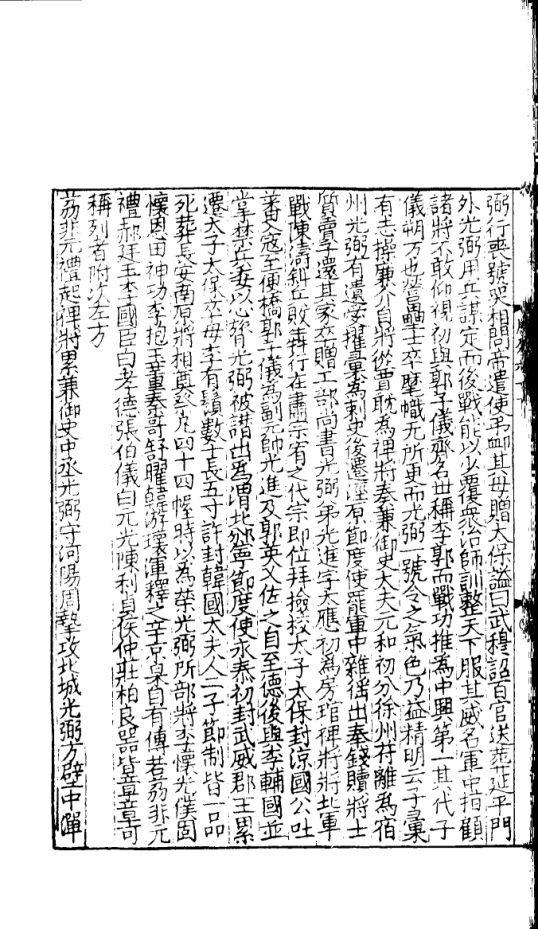 弼行喪號哭相問帝遣使弔卹其母贈太保謚曰武穆詔百官送葬延平門
外光弼用兵謀定而後戰能以少覆衆治師訓整天下服其威名軍中指顧
諸將不敢仰視初與郭子儀齊名世稱李郭而戰功推為中興第一其代子
儀朔方也營壘士卒麾幟无所更而光弼一號令之氣色乃益精明云子彙
有志操廉介自將從賈耽為裨將奏兼御史大夫元和初分徐州苻離為宿
州光弼有遺愛擢彙為刺史後遷涇原節度使罷軍中雜徭出奉錢贖將士
質賣子還其家卒贈工部尚書光弼弟光進字太應初為房琯裨將將北軍
戰陳濤斜兵敗奔行在肅宗宥之代宗即位拜檢校太子太保封涼國公吐
蕃入寇至便橋郭子儀為副元帥光進及郭英乂佐之自至德後與李輔國並
掌禁兵委以心膂光弼被譖出為渭北邠寧節度使永泰初封武威郡王累
遷太子太保卒母李有鬚數十長五寸許封韓國太夫人二子節制皆一品
死葬長安南原將相奠祭凡四十四幄時以為榮光弼所部將李懷光僕固
懷恩田神功李抱玉董秦哥舒曜韓游瓌渾釋之辛京杲自有傳若荔非元
禮郝廷玉李國臣白孝德張伯儀白元光陳利貞侯仲莊柏良器皆章章可
稱列者附次左方
荔非元禮起裨將累兼御史中丞光弼守河陽周摯攻北城光弼方壁中潬